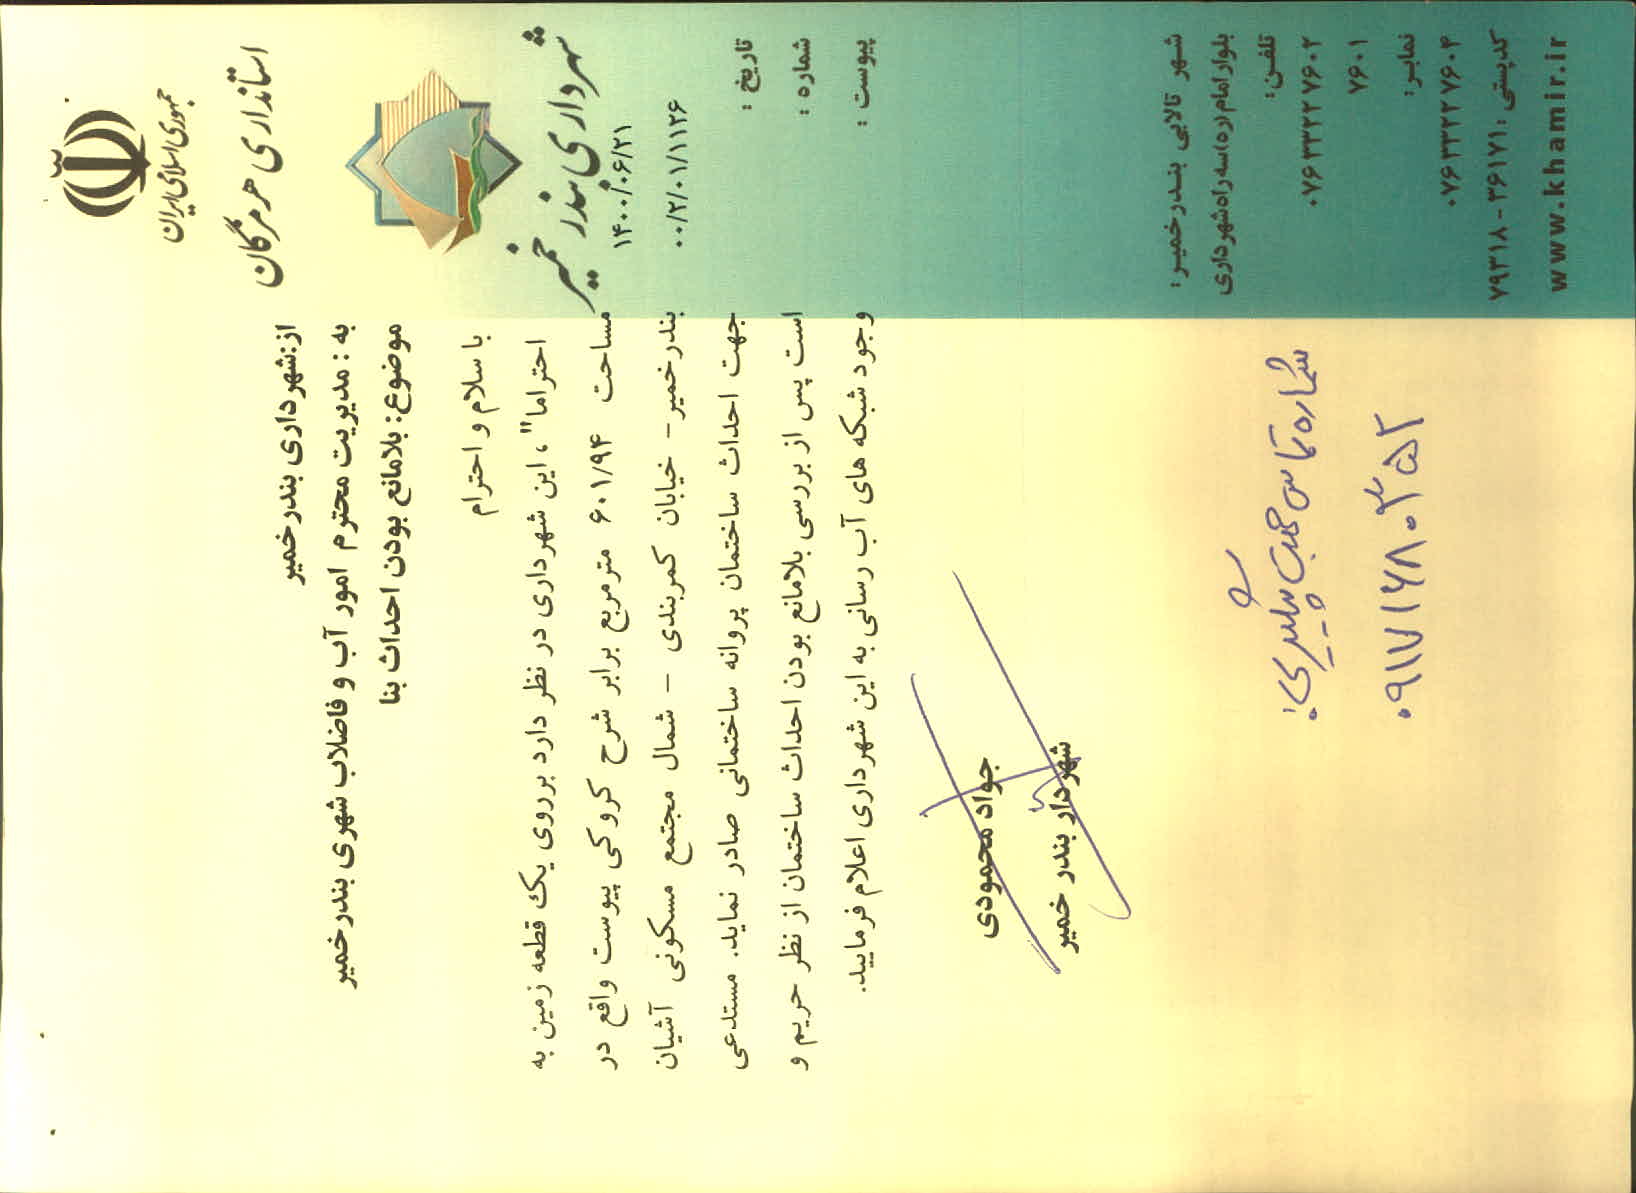 جمهوری اسلامی ایران
استانداری هرمزگان
شهرداری بندر خمیر
۱۴۰۰/۰۶/۲۱
۰۰/۲/۰۱/۱۱۲۶
تاریخ :
شماره :
پیوست :
از:شهرداری بندرخمیر
به : مدیریت محترم امور آب و فاضلاب شهری بندرخمیر
موضوع: بلامانع بودن احداث بنا
با سلام و احترام
احتراما" ، این شهرداری در نظر دارد برروی یک قطعه زمین به
مساحت ۶۰۱/۹۴ مترمربع برابر شرح کروکی پیوست واقع در
بندرخمیر- خیابان کمربندی - شمال مجتمع مسکونی آشیان
جهت احداث ساختمان پروانه ساختمانی صادر نماید. مستدعی
است پس از بررسی بلامانع بودن احداث ساختمان از نظر حریم و
وجود شبکه های آب رسانی به این شهرداری اعلام فرمایید.
جواد محمودی
شهردار بندر خمیر
شهر تالابی بندرخمیر:
بلوار امام(ره)سه راه شهرداری
تلفن:
۰۷۶۳۳۲۲۷۶۰۲
۷۶۰۱
نمابر:
۰۷۶۳۳۲۲۷۶۰۴
کدپستی: ۳۶۱۷۱-۷۹۳۱۸
www.khamir.ir
شماره تماس جهت پیگیری:
۰۹۱۷۱۶۸۰۳۵۲